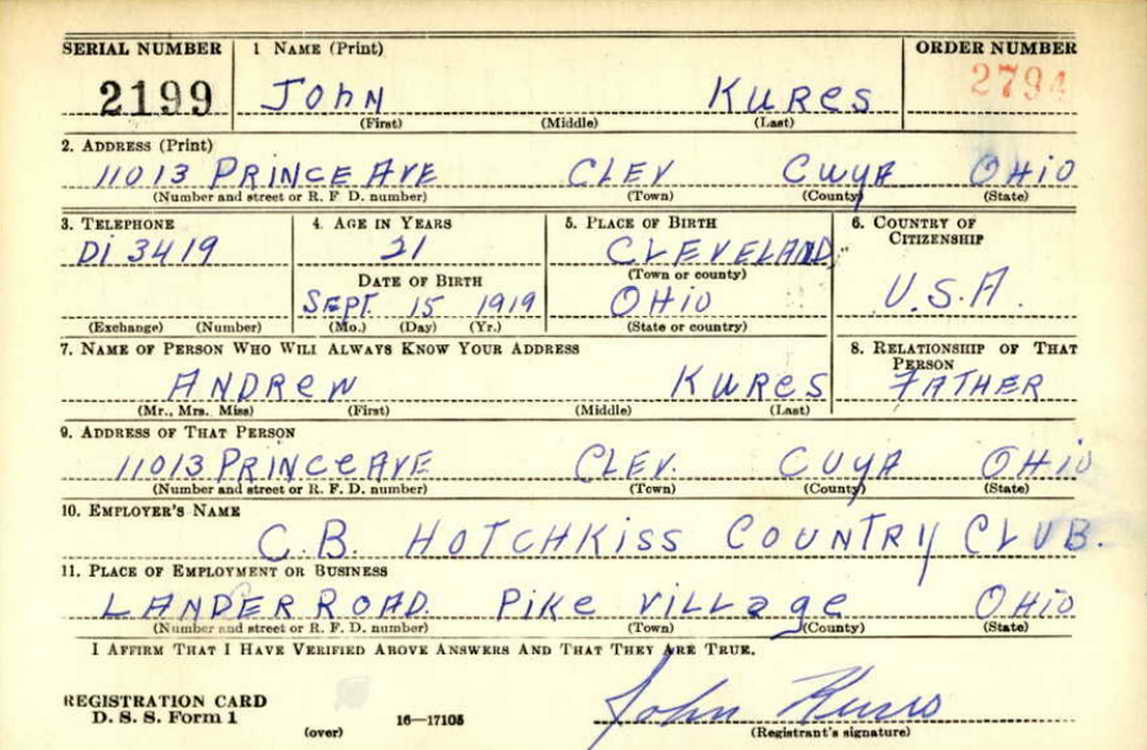 SERIAL NUMBER 1 NAME (Print) ORDER NUMBER
2199 JOHN KURES 2794
(First) (Middle) (Last)
2. ADDRESS (Print)
11013 PRINCE AVE CLEV CUYA OHIO
(Number and street or R. F. D. number) (Town) (County) (State)
3. TELEPHONE 4. AGE IN YEARS 5. PLACE OF BIRTH 6. COUNTRY OF CITIZENSHIP
DI 3419 21 CLEVELAND
DATE OF BIRTH (Town or county)
SEPT. 15 1919 OHIO U.S.A.
(Exchange) (Number) (Mo.) (Day) (Yr.) (State or country)
7. NAME OF PERSON WHO WILL ALWAYS KNOW YOUR ADDRESS 8. RELATIONSHIP OF THAT PERSON
ANDREW KURES FATHER
(Mr., Mrs. Miss) (First) (Middle) (Last)
9. ADDRESS OF THAT PERSON
11013 PRINCE AVE CLEV. CUYA OHIO
(Number and street or R. F. D. number) (Town) (County) (State)
10. EMPLOYER'S NAME
C.B. HOTCHKISS COUNTRY CLUB.
11. PLACE OF EMPLOYMENT OR BUSINESS
LANDER ROAD. PIKE VILLAGE OHIO
(Number and street or R. F. D. number) (Town) (County) (State)
I AFFIRM THAT I HAVE VERIFIED ABOVE ANSWERS AND THAT THEY ARE TRUE.
REGISTRATION CARD
D. S. S. Form 1 John Kures
(over) 16—17105 (Registrant's signature)